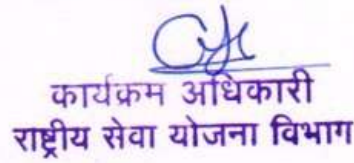 कार्यक्रम अधिकारी
राष्ट्रीय सेवा योजना विभाग